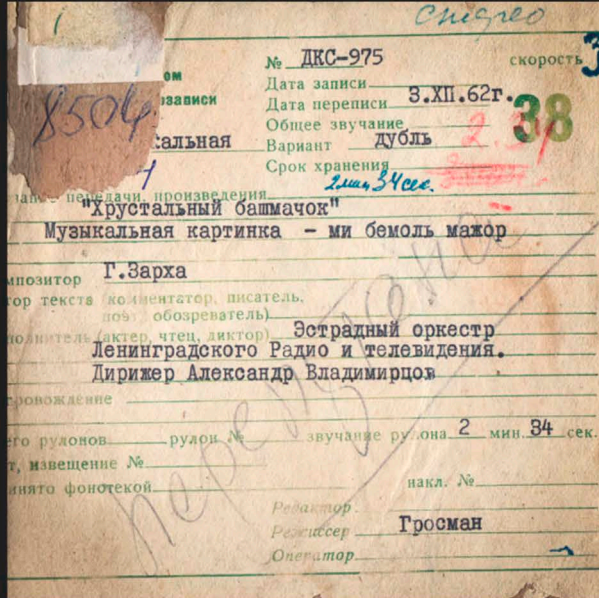 № ДКС-975 скорость 3
ом Дата записи
озаписи Дата переписи 3.XП.62г.
8504 Общее звучание 38
кальная Вариант дубль
Срок хранения
передачи, произведения 2 мин 34 сек.
"Хрустальный башмачок"
Музыкальная картинка - ми бемоль мажор
мпозитор Г.Зарха
ор текста (комментатор, писатель,
поэт, обозреватель)
полнитель (актер, чтец, диктор) Эстрадный оркестр
Ленинградского Радио и телевидения.
Дирижер Александр Владимирцов
провождение
его рулонов рулон № звучание рулона 2 мин. 34 сек.
т, извещение №
инято фонотекой накл. №
Редактор
Режиссер Гросман
Оператор